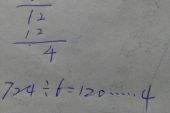 12
12
4
724÷6=120……4